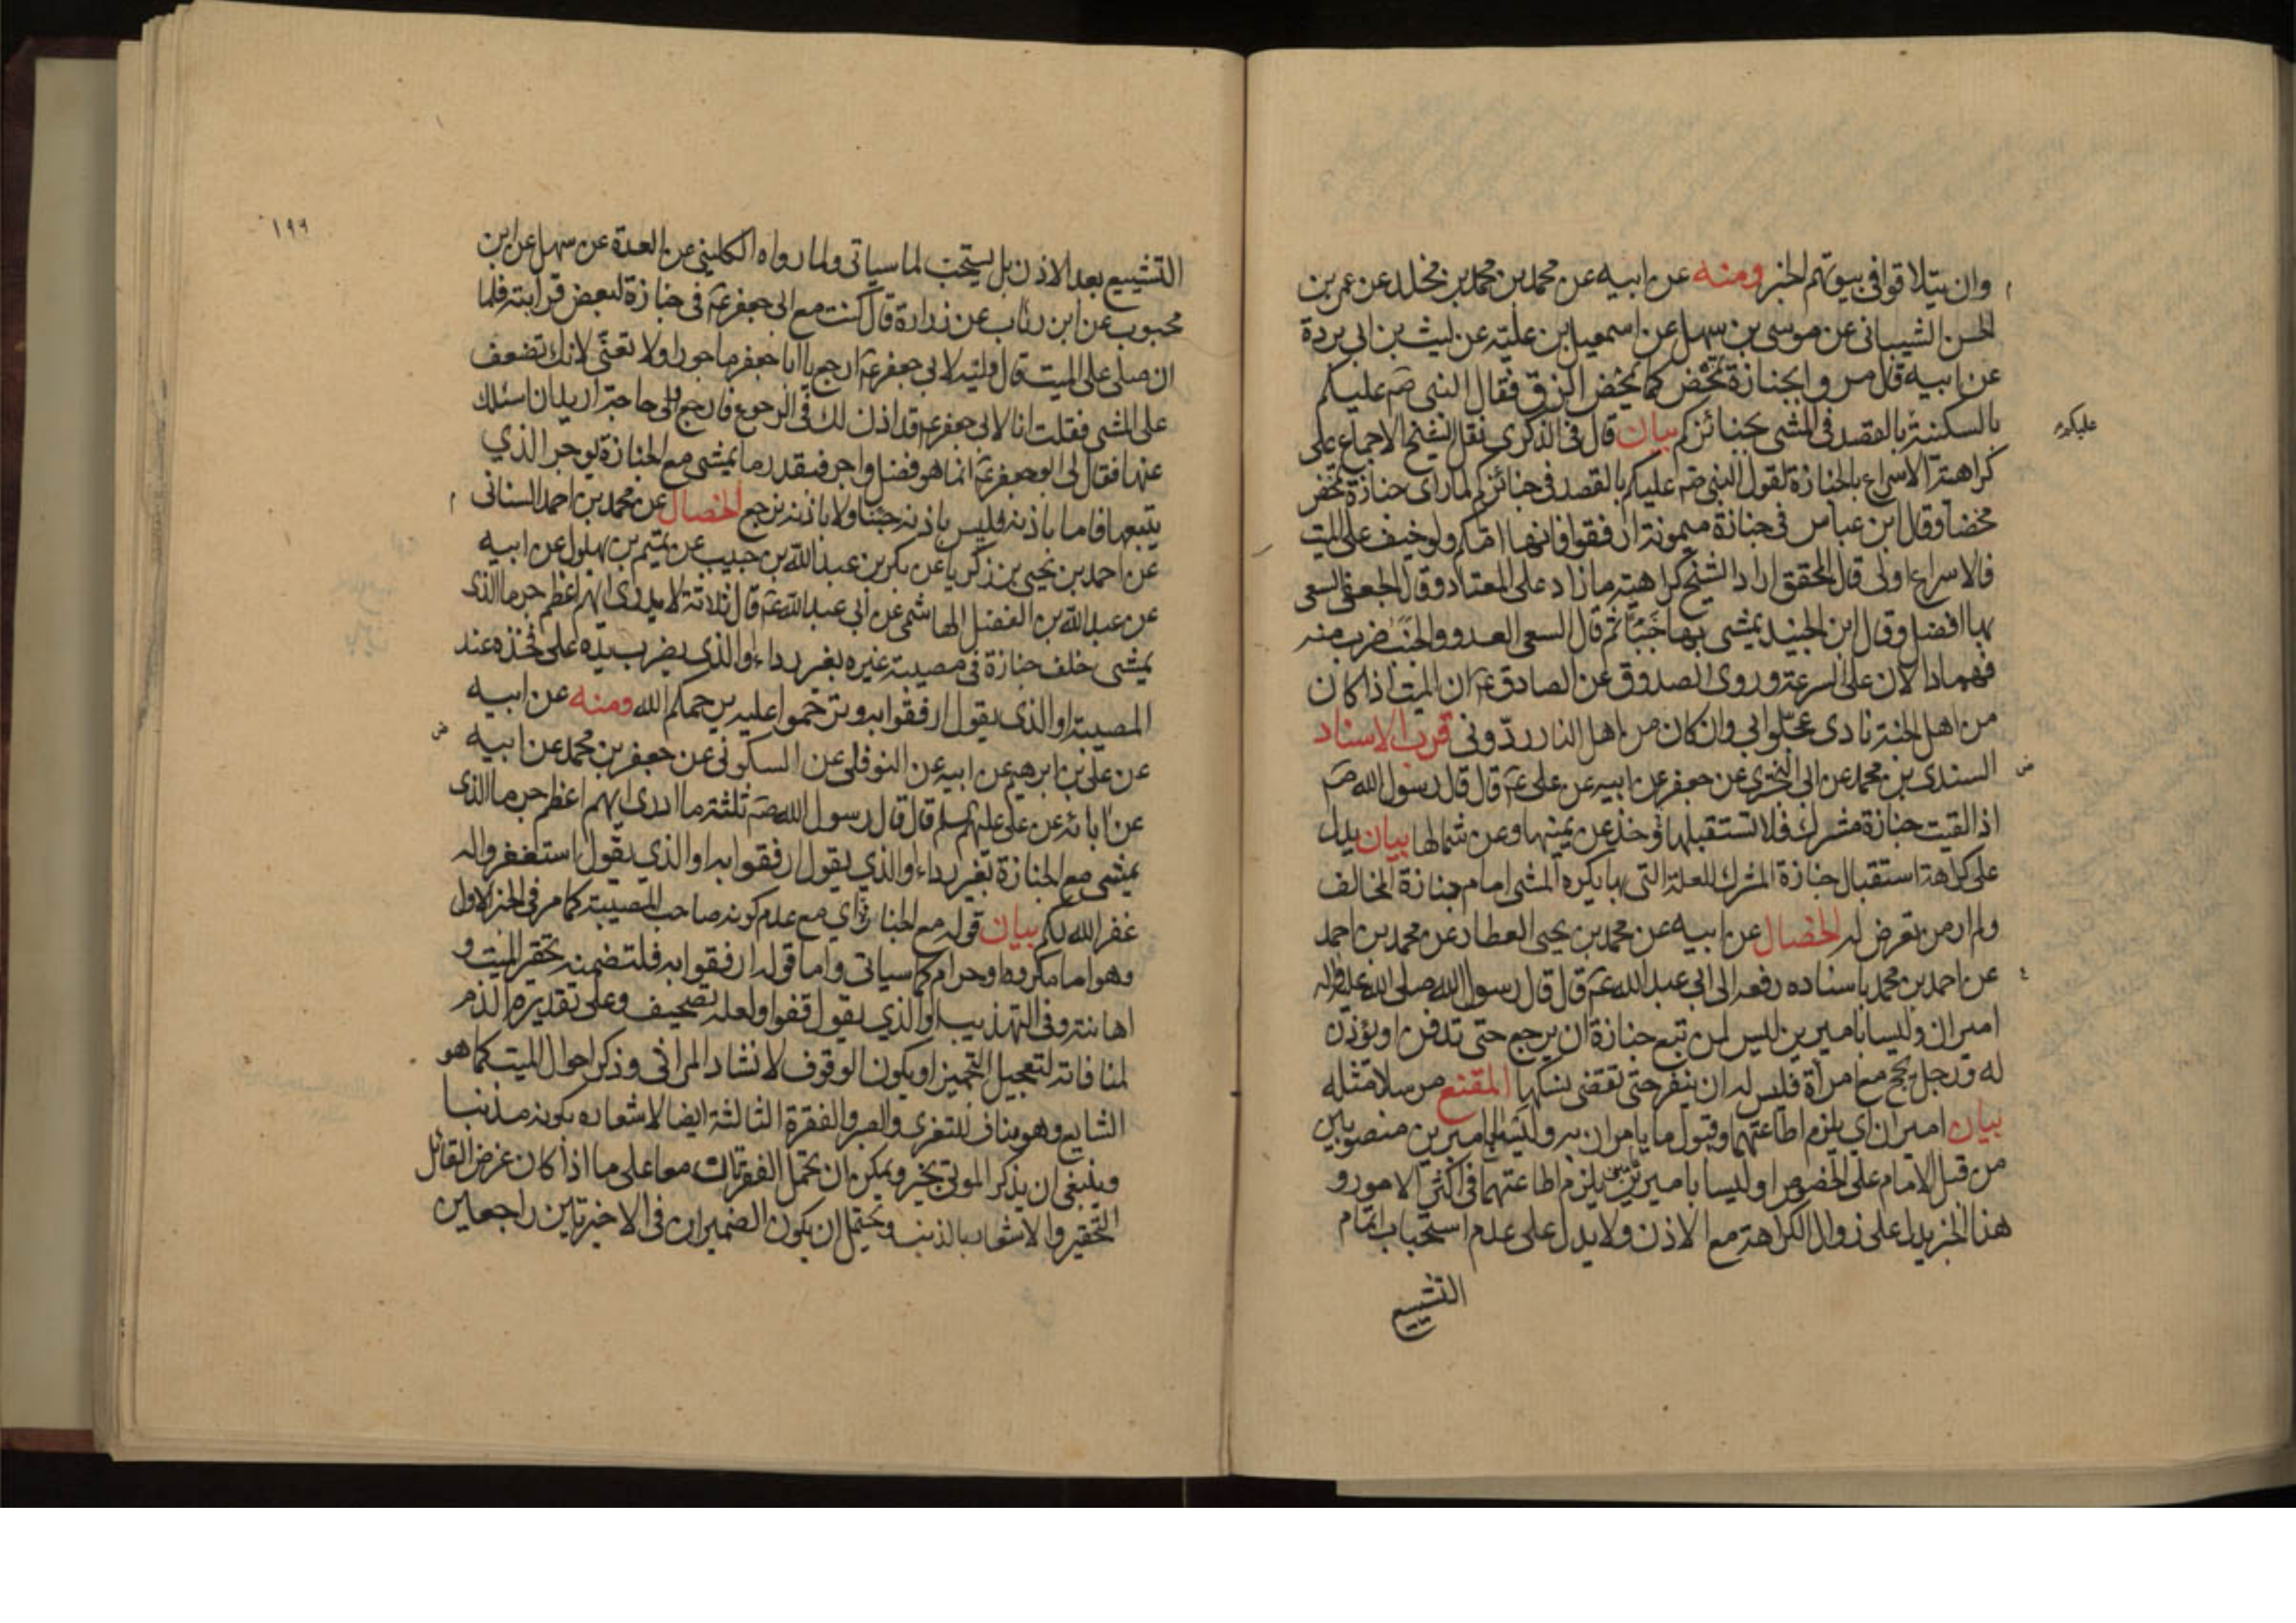 وان يتلاقوا في بيوتهم الخبر ومنه عن ابيه عن محمد بن محمد بن مخلد عن عمر بن
الحسن الشيباني عن موسى بن سهل عن اسمعيل بن علية عن ليث بن ابي بردة
عن ابيه قال مروا بجنازة تمخض كما يمخض الزق فقال النبي صه عليكم
بالسكينة بالقصد في المشي بجنائزكم بيان قال في الذكرى نقل الشيخ الاجماع على
عليكم
كراهة الاسراع بالجنازة لقول النبي صه عليكم بالقصد في جنائزكم لما راى جنازة تمخض
مخضا وقال ابن عباس في جنازة ميمونة ارفقوا فانها امكم ولو خيف على الميت
فالاسراع اولى قال المحقق اراد الشيخ كراهية ما زاد على المعتاد وقال الجعفي السعي
بها افضل وقال ابن الجنيد يمشى بها خببا ثم قال السعي العدو والخبب ضرب منه
فهما دالان على السرعة وروى الصدوق عن الصادق عه ان الميت اذا كان
من اهل الجنة نادى عجلوا بي وان كان من اهل النار ردوني قرب الاسناد
السندي بن محمد عن ابي البختري عن جعفر عن ابيه عن علي عه قال قال رسول الله صه
اذا لقيت جنازة مشرك فلا تستقبلها وخذ عن يمينها وعن شمالها بيان يدل
على كراهة استقبال جنازة المشرك للعلة التي بها يكره المشي امام جنازة المخالف
ولم ار من تعرض له الخصال عن ابيه عن محمد بن يحيى العطار عن محمد بن احمد
عن احمد بن محمد باسناده رفعه الى ابي عبد الله عه قال قال رسول الله صلى الله عليه واله
اميران وليسا باميرين ليس لمن تبع جنازة ان يرجع حتى تدفن او يؤذن
له ورجل يحج مع امرأة فليس له ان ينفر حتى تقضى نسكها المقنع مرسلا مثله
بيان اميران اي يلزم اطاعتهما وقبول ما يامران به وليسا باميرين منصوبين
من قبل الامام على الخصوص او ليسا باميرين يلزم اطاعتهما في اكثر الامور و
هذا الخبر يدل على زوال الكراهة مع الاذن ولا يدل على عدم استحباب اتمام
التشييع
١٩٩
التشييع بعد الاذن بل يستحب لما سياتي ولما رواه الكليني عن العدة عن سهل عن ابن
محبوب عن ابن رئاب عن زرارة قال كنت مع ابي جعفر عه في جنازة لبعض قرابته فلما
ان صلى على الميت قال وليه لابي جعفر عه ارجع يا ابا جعفر ماجورا ولا تعنى لانك تضعف
على المشي فقلت انا لابي جعفر عه قد اذن لك في الرجوع فارجع ولي حاجة اريد ان اسئلك
عنها فقال لي ابو جعفر عه انما هو فضل واجر فبقدر ما يمشي مع الجنازة يوجر الذي
يتبعها فاما باذنه فليس باذنه جئنا ولا باذنه نرجع الخصال عن محمد بن احمد السناني
عن احمد بن يحيى بن زكريا عن بكر بن عبد الله بن حبيب عن تميم بن بهلول عن ابيه
عن عبد الله بن الفضل الهاشمي عن ابي عبد الله عه قال ثلاثة لا يدرى ايهم اعظم جرما الذي
يمشي خلف جنازة في مصيبة غيره بغير رداء والذي يضرب يده على فخذه عند
المصيبة او الذي يقول ارفقوا به وترحموا عليه يرحمكم الله ومنه عن ابيه
عن علي بن ابرهيم عن ابيه عن النوفلي عن السكوني عن جعفر بن محمد عن ابيه
عن ابائه عن علي عليهم السلم قال قال رسول الله صه ثلثة ما ادري ايهم اعظم جرما الذي
يمشي مع الجنازة بغير رداء والذي يقول ارفقوا به او الذي يقول استغفروا له
غفر الله لكم بيان قوله مع الجنازة اي مع عدم كونه صاحب المصيبة كما مر في الخبر الاول
وهو اما مكروه او حرام كما سياتي واما قوله ارفقوا به فلتضمنه تحقير الميت و
اهانته وفي التهذيب او الذي يقول قفوا ولعله تصحيف وعلى تقديره الذم
لمنافاته لتعجيل التجهيز او يكون الوقوف لانشاد المراثي وذكر احوال الميت كما هو
الشايع وهو مناف للتعزي والصبر والفقرة الثالثة ايضا لاشعاره بكونه مذنبا
وينبغي ان يذكر الموتى بخير ويمكن ان تحمل الفقرتان معا على ما اذا كان غرض القائل
التحقير والاشعار بالذنب ويحتمل ان يكون الضميران في الاخيرتين راجعين